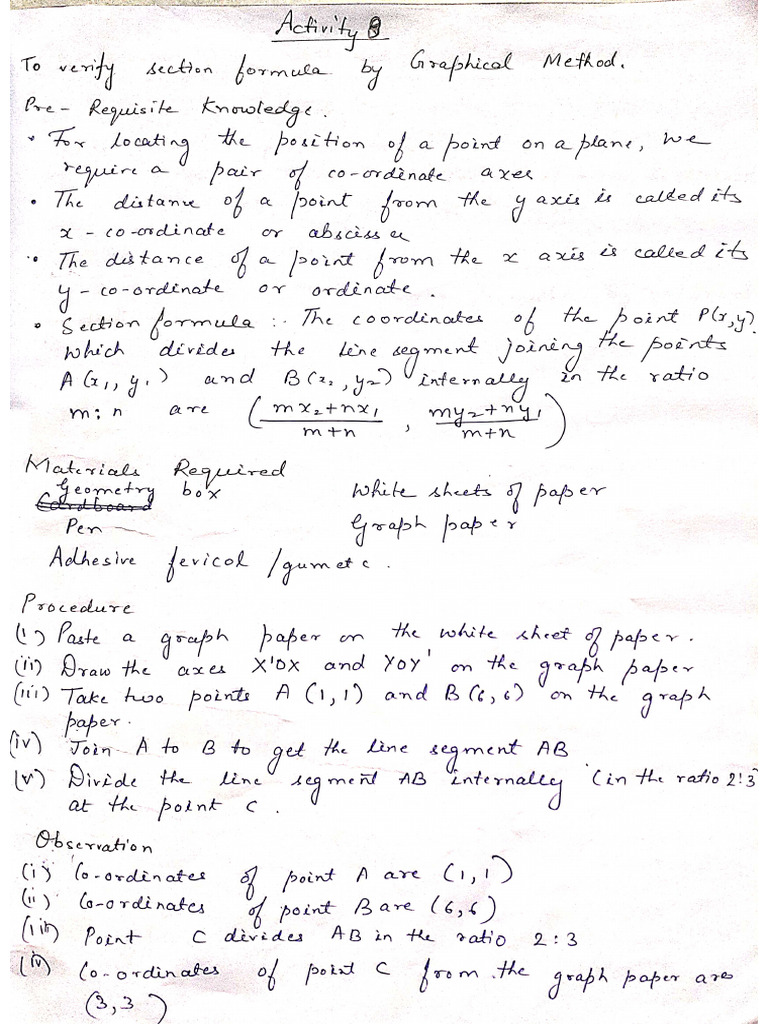 Activity 8
To verify section formula by Graphical Method.
Pre-Requisite Knowledge.
• For locating the position of a point on a plane, we
require a pair of co-ordinate axes
• The distance of a point from the y axis is called its
x-co-ordinate or abscissa
• The distance of a point from the x axis is called its
y-co-ordinate or ordinate.
• Section formula :- The coordinates of the point P(x,y)
which divides the line segment joining the points
A(x₁, y₁) and B(x₂, y₂) internally in the ratio
m:n are ( mx₂+nx₁ / m+n , my₂+ny₁ / m+n )
Materials Required
Geometry box White sheets of paper
Cardboard
Pen Graph paper
Adhesive fevicol /gum etc.
Procedure
(i) Paste a graph paper on the white sheet of paper.
(ii) Draw the axes X'OX and YOY' on the graph paper
(iii) Take two points A (1,1) and B(6,6) on the graph
paper.
(iv) Join A to B to get the line segment AB
(v) Divide the line segment AB internally (in the ratio 2:3
at the point C.
Observation
(i) Co-ordinates of point A are (1,1)
(ii) Co-ordinates of point B are (6,6)
(iii) Point C divides AB in the ratio 2:3
(iv) Co-ordinates of point C from the graph paper are
(3,3)